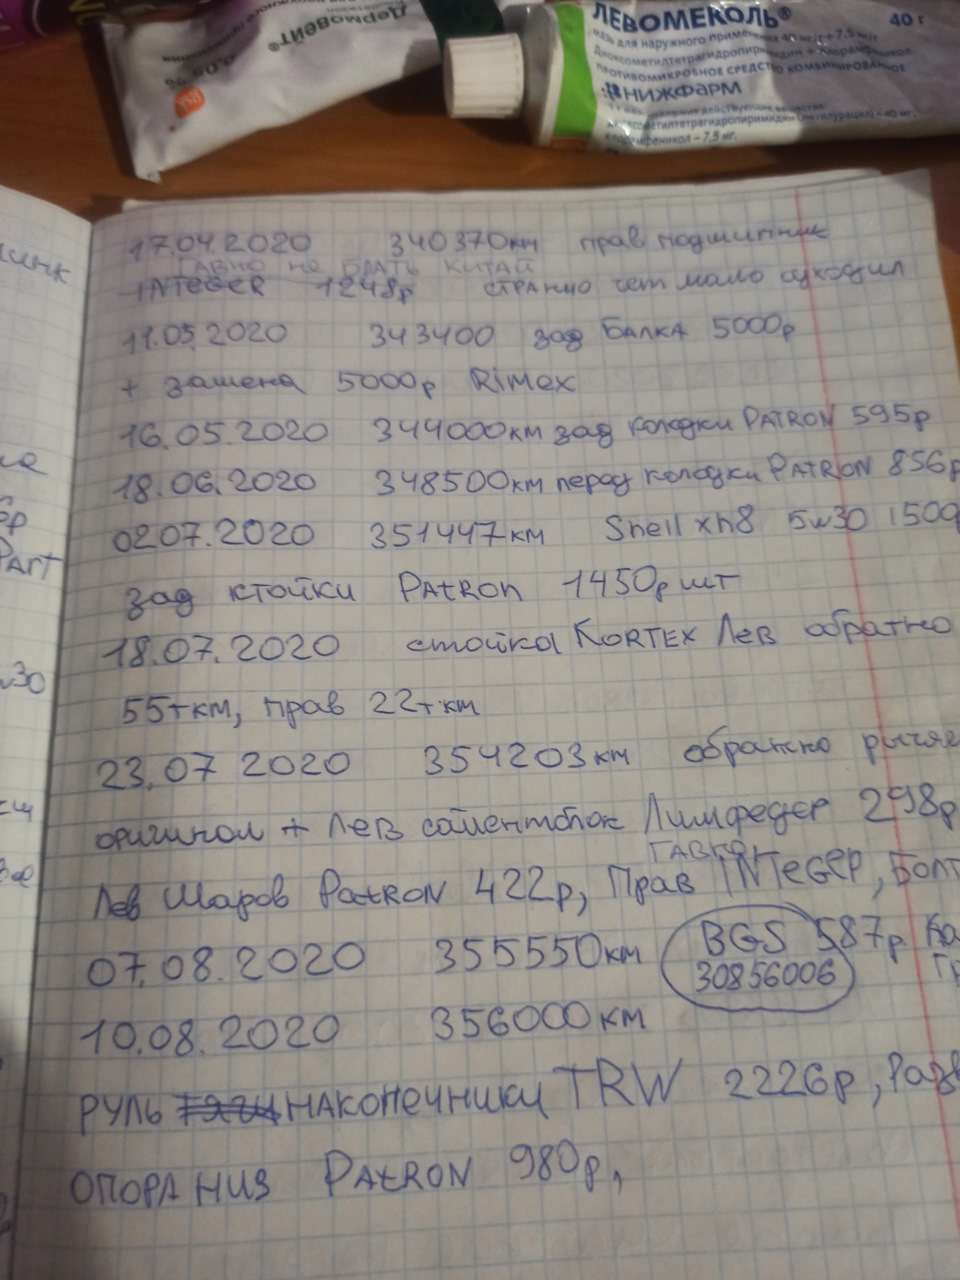 Дермовейт®
0,05 %
gsk
ЛЕВОМЕКОЛЬ®
40 г
мазь для наружного применения 40 мг/г + 7,5 мг/г
Диоксометилтетрагидропиримидин + Хлорамфеникол
ПРОТИВОМИКРОБНОЕ СРЕДСТВО КОМБИНИРОВАННОЕ
НИЖФАРМ
17.04.2020 340370км прав подшипник
ГАВНО НЕ БРАТЬ КИТАЙ
INTEGER 1248р СТРАННО чет мало отходил
11.05.2020 343400 зад БАЛКА 5000р
+ замена 5000р Rimex
16.05.2020 344000км зад колодки PATRON 595р
18.06.2020 348500км перед колодки PATRON 856р
02.07.2020 351447км Shell xh8 5w30 1500
зад стойки PATRON 1450р шт
18.07.2020 стойка KORTEX Лев обратно
55ткм, прав 22т.км
23.07 2020 354203км обратно рычаг
оригинал + Лев сайлентблок Лимфедер 298р
ГАВНО
Лев Шаров PATRON 422р, Прав INTEGEР, Болт
07.08.2020 355550км BGS 587р Ка
30856006
10.08.2020 356000км
РУЛЬ НАКОНЕЧНИКИ TRW 2226р, Разв
ОПОРА НИЗ PATRON 980р,
Part
w30